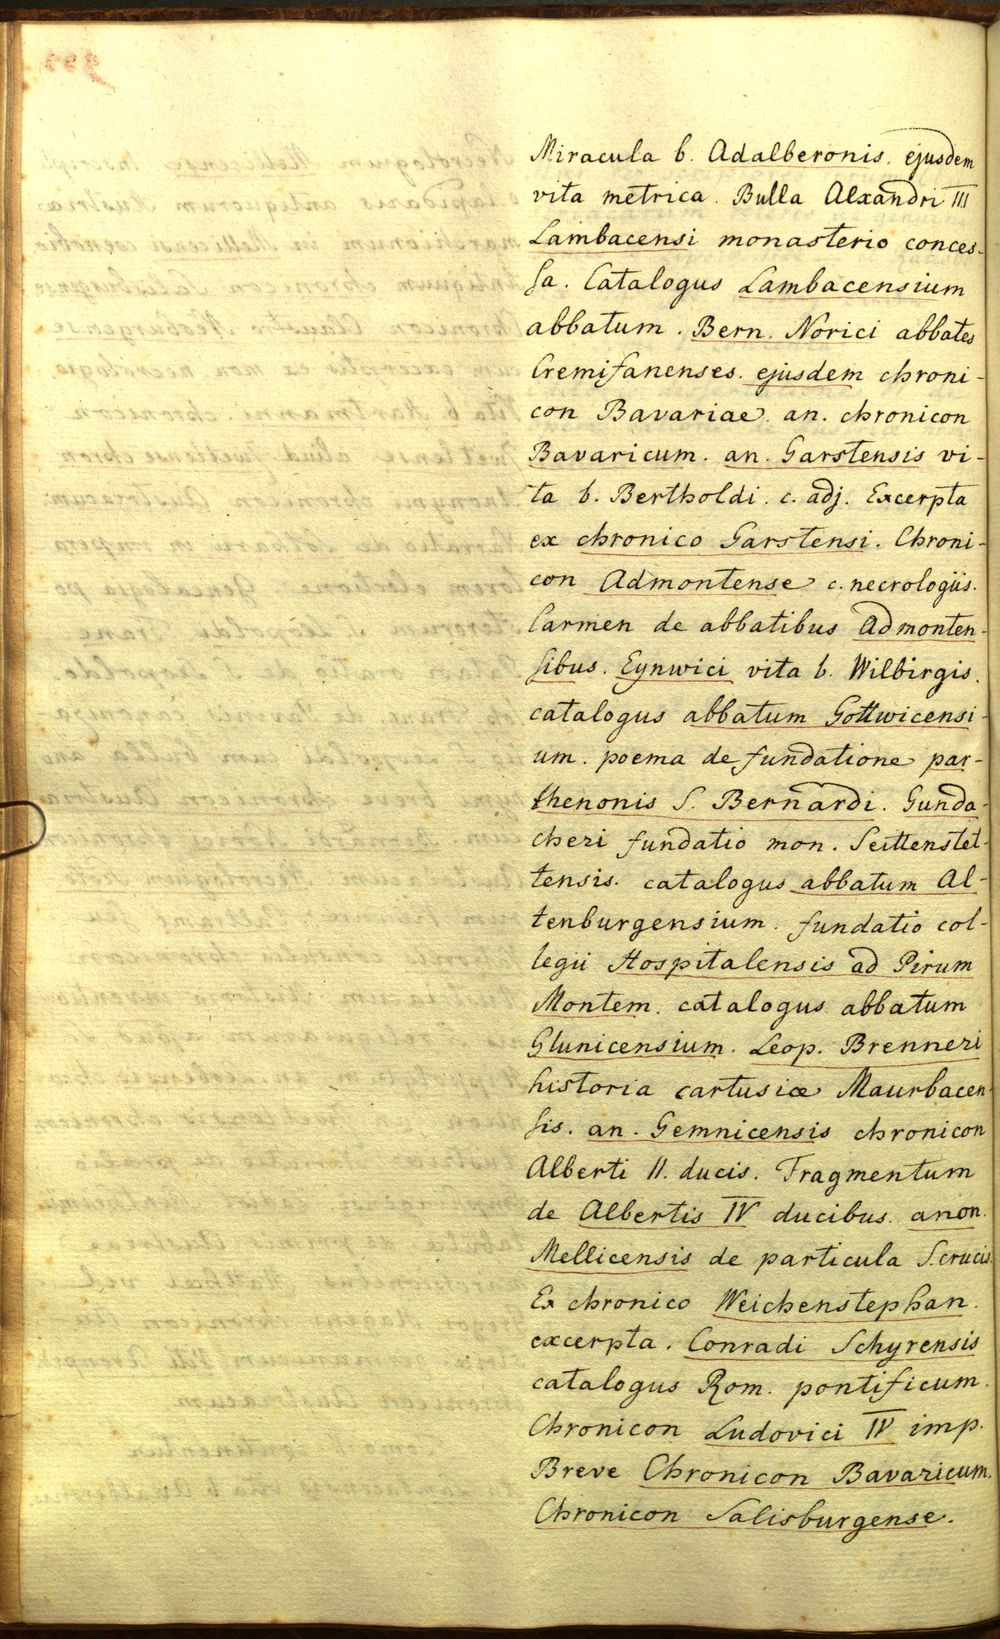 Miracula b. Adalberonis. ejusdem
vita metrica. Bulla Alxandri III
Lambacensi monasterio conces-
sa. Catalogus Lambacensium
abbatum. Bern. Norici abbates
Cremifanenses. ejusdem chroni-
con Bavariae. an. chronicon
Bavaricum. an. Garstensis vi-
ta b. Bertholdi. c. adj. Excerpta
ex chronico Garstensi. Chroni-
con Admontense c. necrologiis.
Carmen de abbatibus Admonten-
sibus. Eynwici vita b. Wilbirgis.
catalogus abbatum Gottwicensi-
um. poema de fundatione par-
thenonis S. Bernardi. Gunda-
cheri fundatio mon. Seittenstet-
tensis. catalogus abbatum Al-
tenburgensium. fundatio col-
legii Hospitalensis ad Pirum
Montem. catalogus abbatum
Glunicensium. Leop. Brenneri
historia cartusiæ Maurbacen-
sis. an. Gemnicensis chronicon
Alberti II. ducis. Fragmentum
de Albertis IV ducibus. anon.
Mellicensis de particula S. crucis.
Ex chronico Weichenstephan.
excerpta. Conradi Schyrensis
catalogus Rom. pontificum.
Chronicon Ludovici IV imp.
Breve Chronicon Bavaricum.
Chronicon Salisburgense.